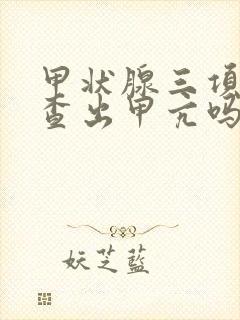 甲状腺三项
查出甲亢吗
妖芝蓝